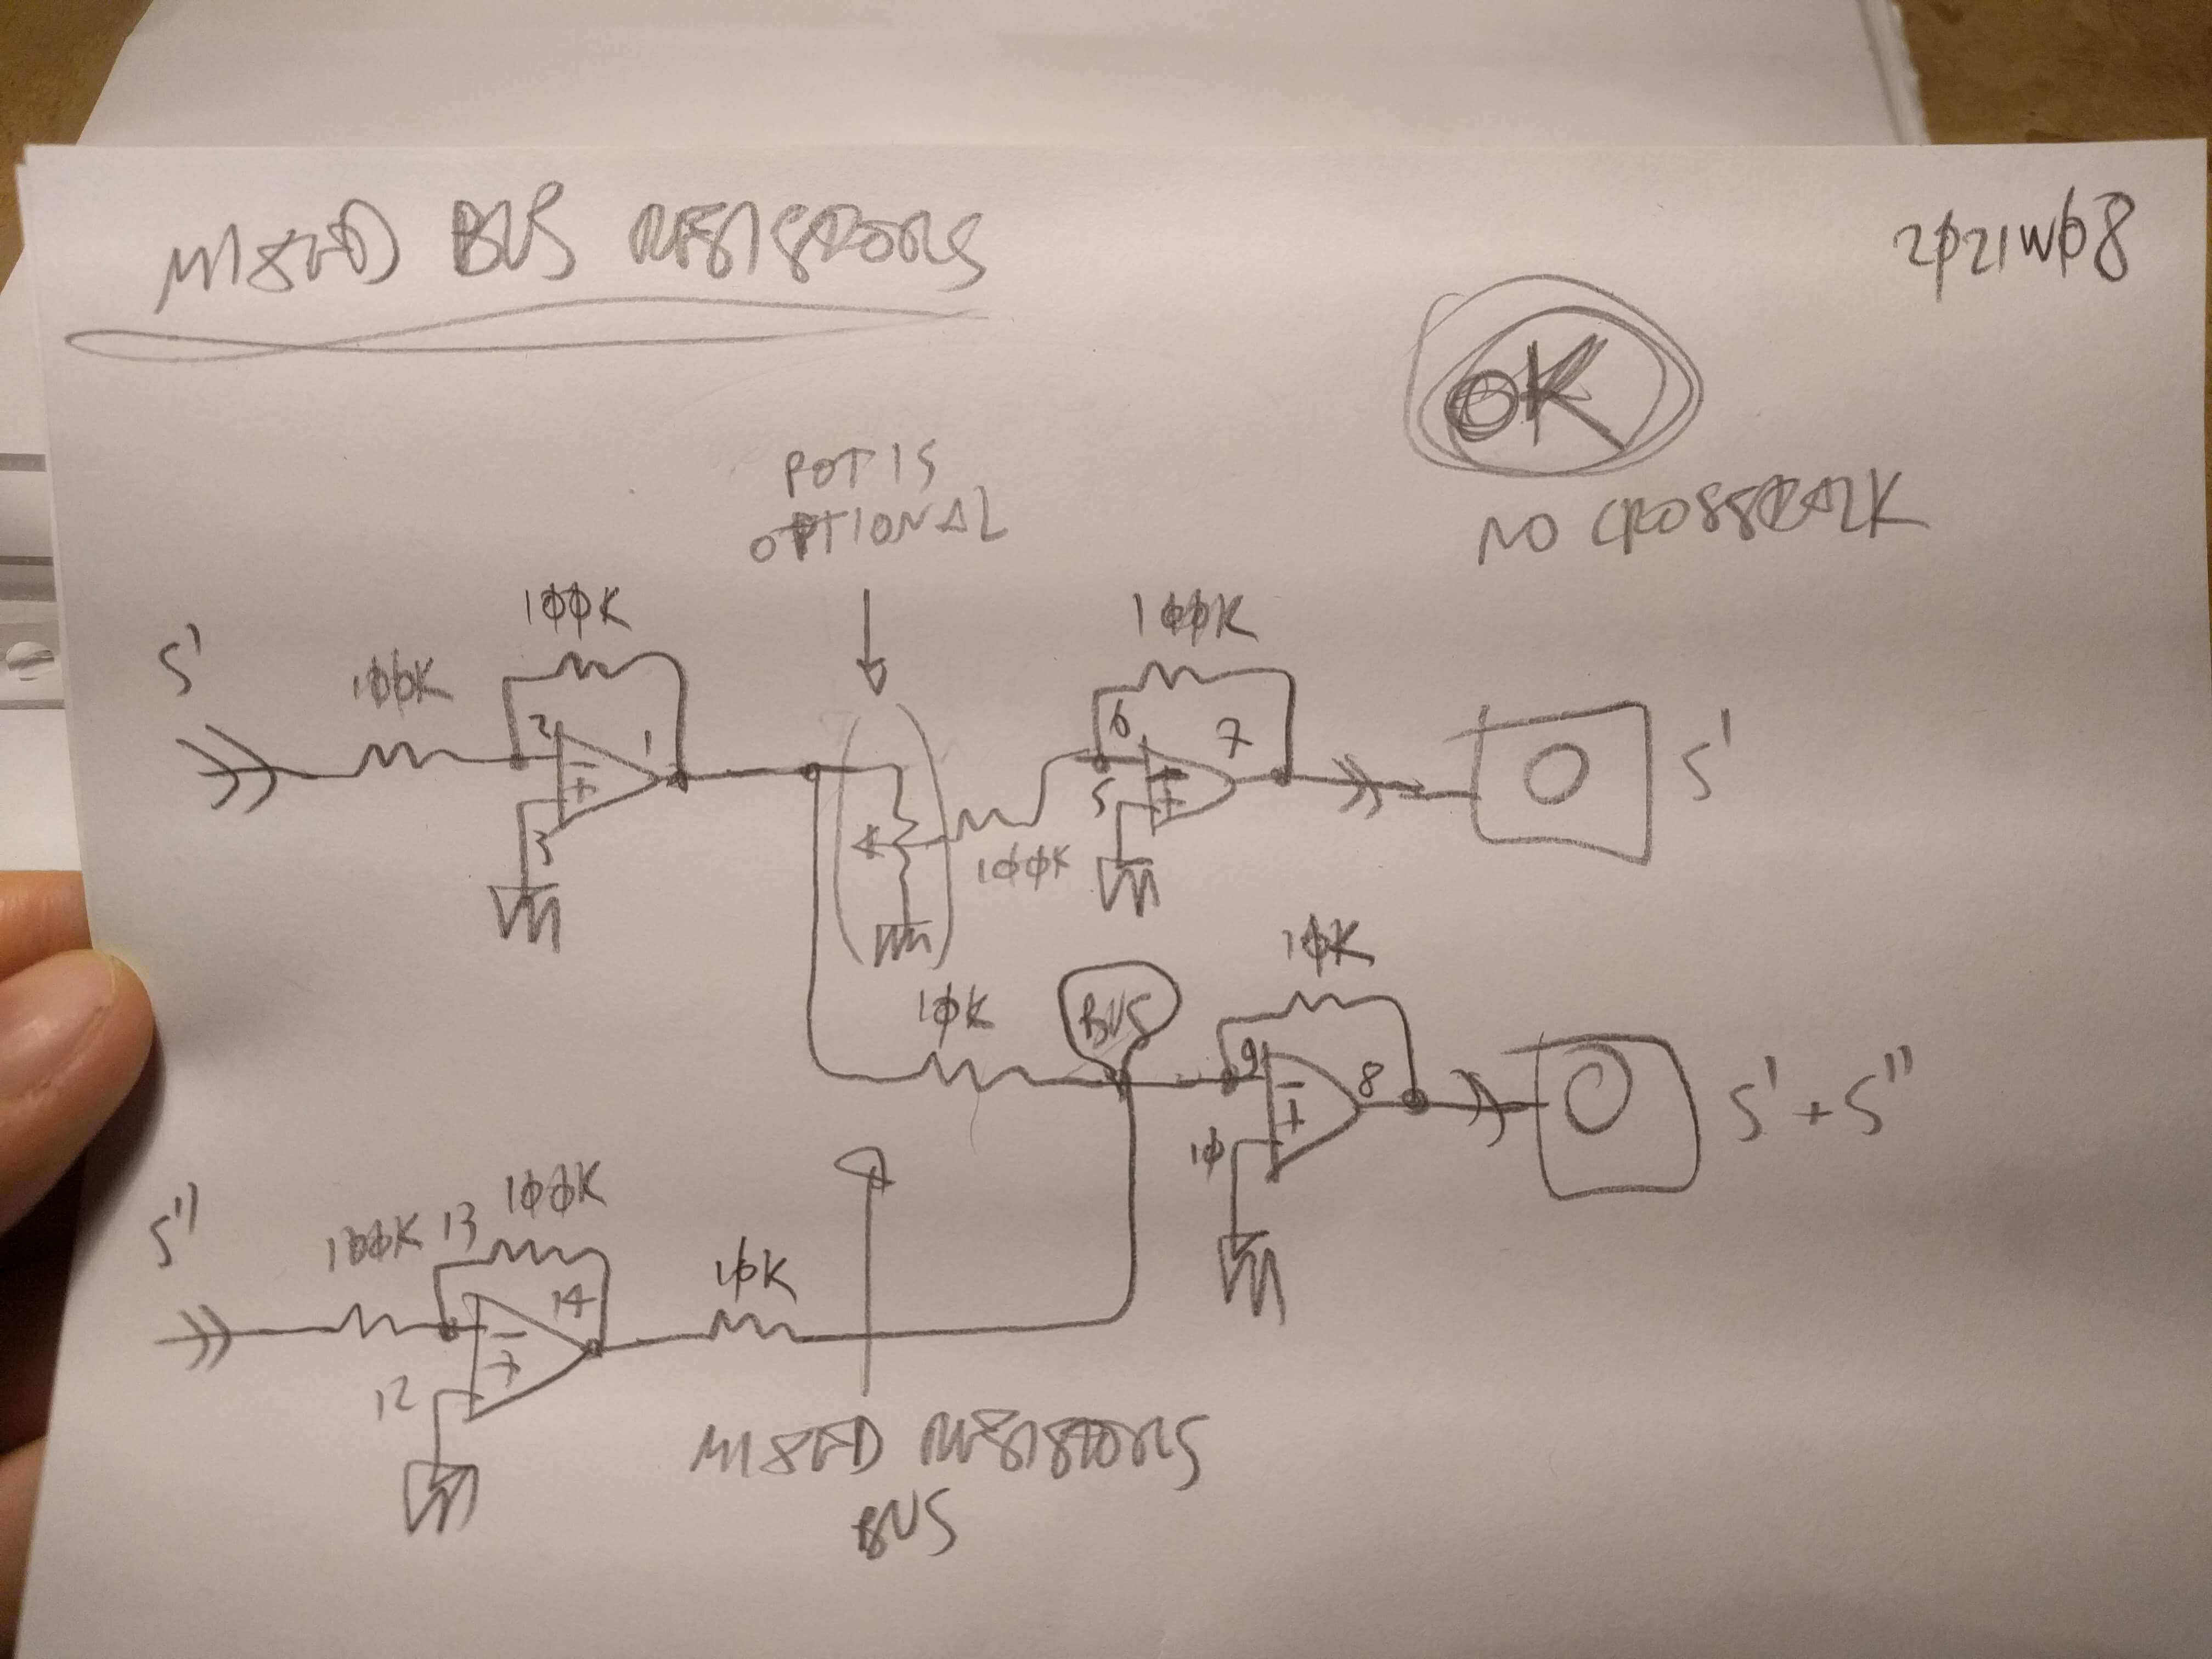 MIXED BUS RESISTORS
2021W08
OK
NO CROSSTALK
POT IS
OPTIONAL
S'
100K
100K
2
1
3
100K
100K
6
7
5
S'
10K
BUS
10K
9
8
10
S'+S"
S"
100K
13
100K
14
12
10K
MIXED RESISTORS
BUS